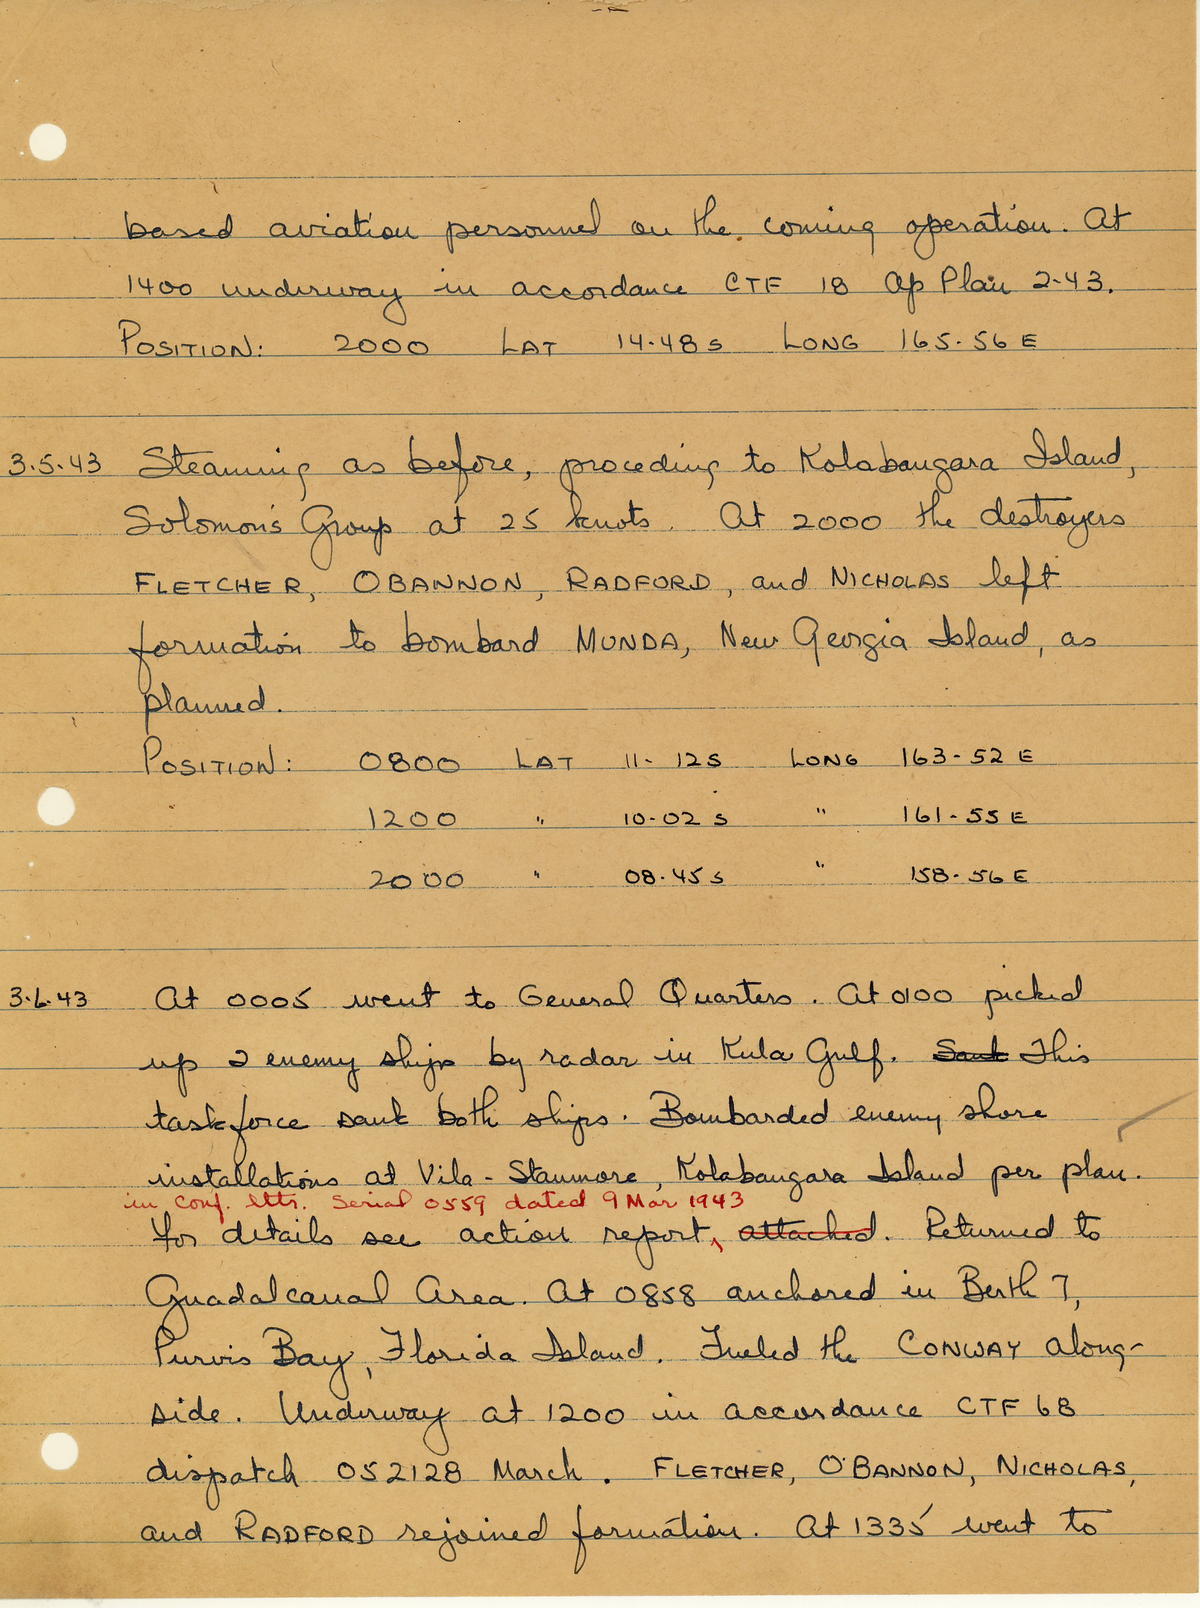 based aviation personnel on the coming operation. At
1400 underway in accordance CTF 18 Op Plan 2-43.
POSITION: 2000 LAT 14-48 S LONG 165-56 E
3.5.43 Steaming as before, proceding to Kolabangara Island,
Solomons Group at 25 knots. At 2000 the destroyers
FLETCHER, OBANNON, RADFORD, and NICHOLAS left
formation to bombard MUNDA, New Georgia Island, as
planned.
POSITION: 0800 LAT 11-12 S LONG 163-52 E
1200 " 10-02 S " 161-55 E
2000 " 08-45 S " 158-56 E
3.6.43 At 0005 went to General Quarters. At 0100 picked
up 2 enemy ships by radar in Kula Gulf. Sank This
taskforce sank both ships. Bombarded enemy shore
installations at Vila-Stanmore, Kolabangara Island per plan.
in conf. lttr. Serial 0559 dated 9 Mar 1943
For details see action report, attached. Returned to
Guadalcanal Area. At 0858 anchored in Berth 7,
Purvis Bay, Florida Island. Fueled the CONWAY along-
side. Underway at 1200 in accordance CTF 68
dispatch 052128 March. FLETCHER, O'BANNON, NICHOLAS,
and RADFORD rejoined formation. At 1335 went to